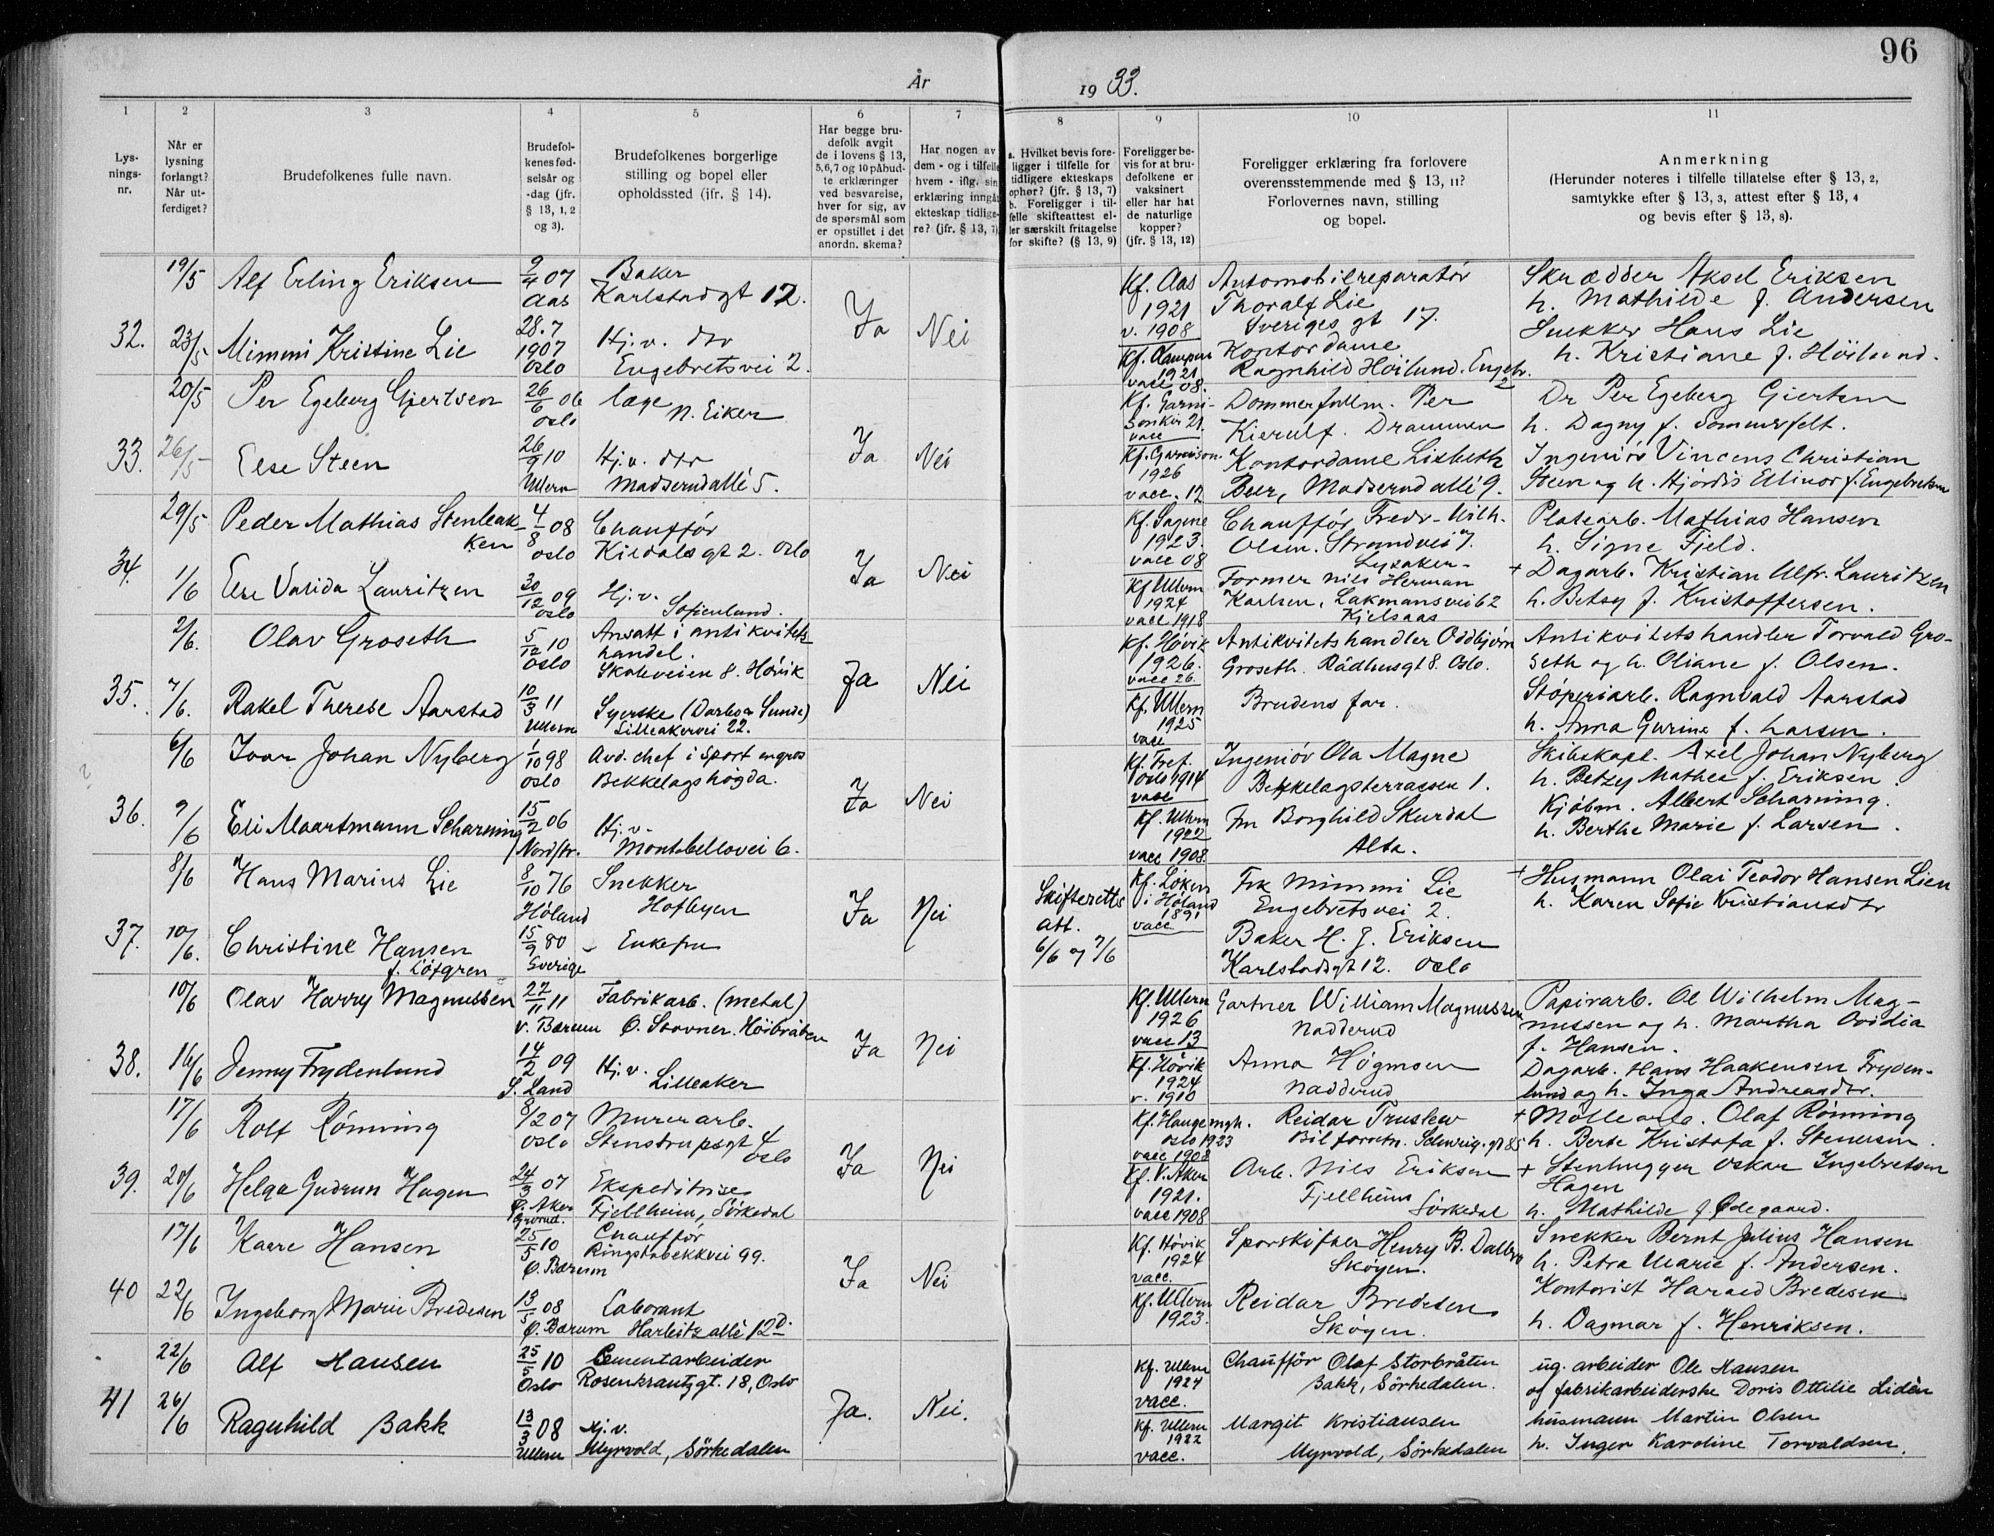 96
År 1933.
1
2
3
4
5
6
7
8
9
10
11
Lys-
nings-
nr.
Når er
lysning
forlangt?
Når ut-
ferdiget?
Brudefolkenes fulle navn.
Brudefol-
kenes fød-
selsår og
-dag (jfr.
§ 13, 1, 2
og 3).
Brudefolkenes borgerlige
stilling og bopel eller
opholdssted (jfr. § 14).
Har begge bru-
defolk avgit
de i lovens § 13,
5,6,7 og 10 påbud-
te erklæringer
ved besvarelse,
hver for sig, av
de spørsmål som
er opstillet i det
anordn. skema?
Har nogen av
dem - og i tilfelle
hvem - iflg. sin
erklæring inngått
ekteskap tidlige-
re? (jfr. § 13, 7)
a. Hvilket bevis fore-
ligger i tilfelle for
tidligere ekteskaps
ophør? (jfr. § 13, 7)
b. Foreligger i til-
felle skifteattest el-
ler særskilt fritagelse
for skifte? (§ 13, 9)
Foreligger be-
vis for at bru-
defolkene er
vaksinert
eller har hat
de naturlige
kopper?
(jfr. § 13, 12)
Foreligger erklæring fra forlovere
overensstemmende med § 13, 11?
Forlovernes navn, stilling
og bopel.
Anmerkning
(Herunder noteres i tilfelle tillatelse efter § 13, 2,
samtykke efter § 13, 3, attest efter § 13, 4
og bevis efter § 13, 8).
32.
19/5
23/5
Alf Erling Eriksen
Mimmi Kristine Lie
9/4 07
Aas
28.7
1907
Oslo
Baker
Karlstadgt 12.
Hj.v. dtr
Engebretsvei 2.
Ja
Nei
Kf. Aas
1921
v. 1908
Kf. Kampen
1921
vacc 08.
Automobilreparatør
Thoralf Lie
Sveriges gt 17.
Kontordame
Ragnhild Höilund. Engebr.
2
Skrædder Aksel Eriksen
h. Mathilde f. Andersen
Snekker Hans Lie
h. Kristiane f. Höilund.
33.
20/5
26/5
Per Egeberg Gjertsen
Else Steen
26/6 06
Oslo
26/9 10
Ullern
læge
N. Eiker
Hj.v. dtr
Madserudallé 5.
Ja
Nei
Kf. Garni-
sonskir 21.
vacc
Kf. Garnison
1926
vacc. 12
Dommerfullm. Per
Kierulf. Drammen
Kontordame Lisbeth
Beer, Madserudallé 9.
Dr Per Egeberg Giertsen
h. Dagny f. Sommerfelt.
Ingeniör Vincens Christian
Steen og h. Hjördis Ellinor f. Engebretsen
34.
29/5
1/6
Peder Mathias Stenbak-
ken
Else Valida Lauritzen
4/8 08
Oslo
30/12 09
Oslo
Chauffør
Kildalsgt 2. Oslo
Hj.v.
Sofienlund.
Ja
Nei
Kf. Sagene
1923.
vacc 08
Kf Ullern
1924
vacc 1918
Chauffør Fredr. Wilh.
Olsen. Strandvei 7.
Lysaker-
Former Nils Herman
Karlsen, Lakmansvei 62
Kjelsaas
Platearb. Mathias Hansen
h. Signe Fjeld.
+ Dagarb. Kristian Alfr. Lauritzen
h. Betsy f. Kristoffersen.
35.
2/6.
7/6.
Olav Groseth
Rakel Therese Aarstad
5/12 10
Oslo
10/3 11
Ullern
Ansatt i antikvitets
handel.
Skoleveien 8. Høvik
Syerske (Dorbo & Sunde)
Lilleakervei 22.
Ja
Nei
Kf. Høvik
1926.
vacc 26.
Kf. Ullern
1925
vacc
Antikvitetshandler Oddbjørn
Groseth. Rådhusgt 8. Oslo.
Brudens far.
Antikvitetshandler Torvald Gro-
seth og h. Oliane f. Olsen.
Støperiarb. Ragnvald Aarstad
h. Anna Gurine f. Larsen.
36.
6/6
9/6
Ivar Johan Nyberg
Eli Maartmann Scharning
1/10 98
Oslo
15/2 06
Nordstr.
Avd. chef i Sport engros
Bekkelagshøgda.
Hj.v.
Montebellovei 6.
Ja
Nei
Kf. Tref.
Oslo 1914
vacc
Kf. Ullern
1922
vacc 1908.
Ingeniør Ola Magne
Bekkelagsterrassen 1.
Fru Borghild Skurdal
Alta.
Skibskapt. Axel Johan Nyberg
h. Betzy Mathea f. Eriksen
Kjøbm. Albert Scharning.
h. Berthe Marie f. Larsen.
37.
8/6
10/6.
Hans Marius Lie
Christine Hansen
f. Löfgren
8/10 76
Høland
15/9 80
Sverige
Snekker
Hofbyen
Enkefru
Ja
Nei
Skifteretts
att.
6/6 og 7/6
Kf. Løken
i Høland
1891
vacc
Frk Mimmi Lie
Engebretsvei 2.
Baker H. J. Eriksen
Karlstadgt 12. Oslo
+ Husmann Olai Teodor Hansen Lien
h. Karen Sofie Kristiansdtr
38.
10/6
16/6
Olav Harry Magnussen
Jenny Frydenlund
27/11 11
V. Bærum
14/2 09
S. Land
Fabrikarb. (metal)
O. Stovner. Höibråten
Hj.v.
Lilleaker
Ja
Nei
Kf. Ullern
1926
vacc 13
Kf. Høvik
1924
v. 1910
Gartner William Magnussen
Nadderud
Anna Høgmoen
Nadderud
Papirarb. Ole Wilhelm Mag-
nussen og h. Martha Ovidia
f. Hansen.
Dagarb. Hans Haakensen Fryden-
lund og h. Inga Andreasdtr.
39.
17/6
20/6
Rolf Rönning
Helga Gudrun Hagen
8/2 07
Oslo
24/3 07
Ø. Aker
Grorud.
Murerarb.
Stenstrupsgt 4
Oslo
Ekspeditrise
Fjellheim, Sörkedal
Ja
Nei
Kf. Haugemgh.
Oslo 1923
vacc 1908
Kf. V. Aker
1921.
vacc 1908
Reidar Truslew
Bilforretn. Schweig.gt 85
Arb. Nils Eriksen
Fjellheim
Sörkedal
+ Møllearb. Olaf Rönning
h. Berte Kristofa f. Stenersen.
+ Stenhugger Oskar Ingebretsen
Hagen
h. Mathilde f. Ødegaard.
40
17/6
22/6
Kaare Hansen
Ingeborg Marie Bredesen
25/5 10
Ø. Bærum
13/5 08
Ø. Bærum
Chauffør
Ringstabekkvei 99.
Laborant
Harbitz allé 12 D.
Ja
Nei
Kf. Høvik
1924
vacc.
Kf. Ullern
1923.
Sporskifter Henry B. Dalbro
Skøyen.
Reidar Bredesen
Skøyen.
Snekker Bernt Julius Hansen
h. Petra Marie f. Andersen.
Kontorist Harald Bredesen
h. Dagmar f. Henriksen.
41
22/6
26/6
Alf Hansen
Ragnhild Bakk
25/5 10
Oslo
13/3 08
Ullern
Cementarbeider
Rosenkrantzgt. 18, Oslo
Hj.v.
Myrvold, Sörkedalen
Ja.
Nei.
Kf. Ullern
1924
vacc.
Kf. Ullern
1922
vacc.
Chauffør Olaf Storbråten
Bakk, Sörkedalen.
Margit Kristiansen
Myrvold, Sörkedalen
ug. arbeider Ole Hansen
og fabrikarbeiderske Doris Ottilie Lidén
husmann Martin Olsen
h. Inger Karoline Torvaldsen.